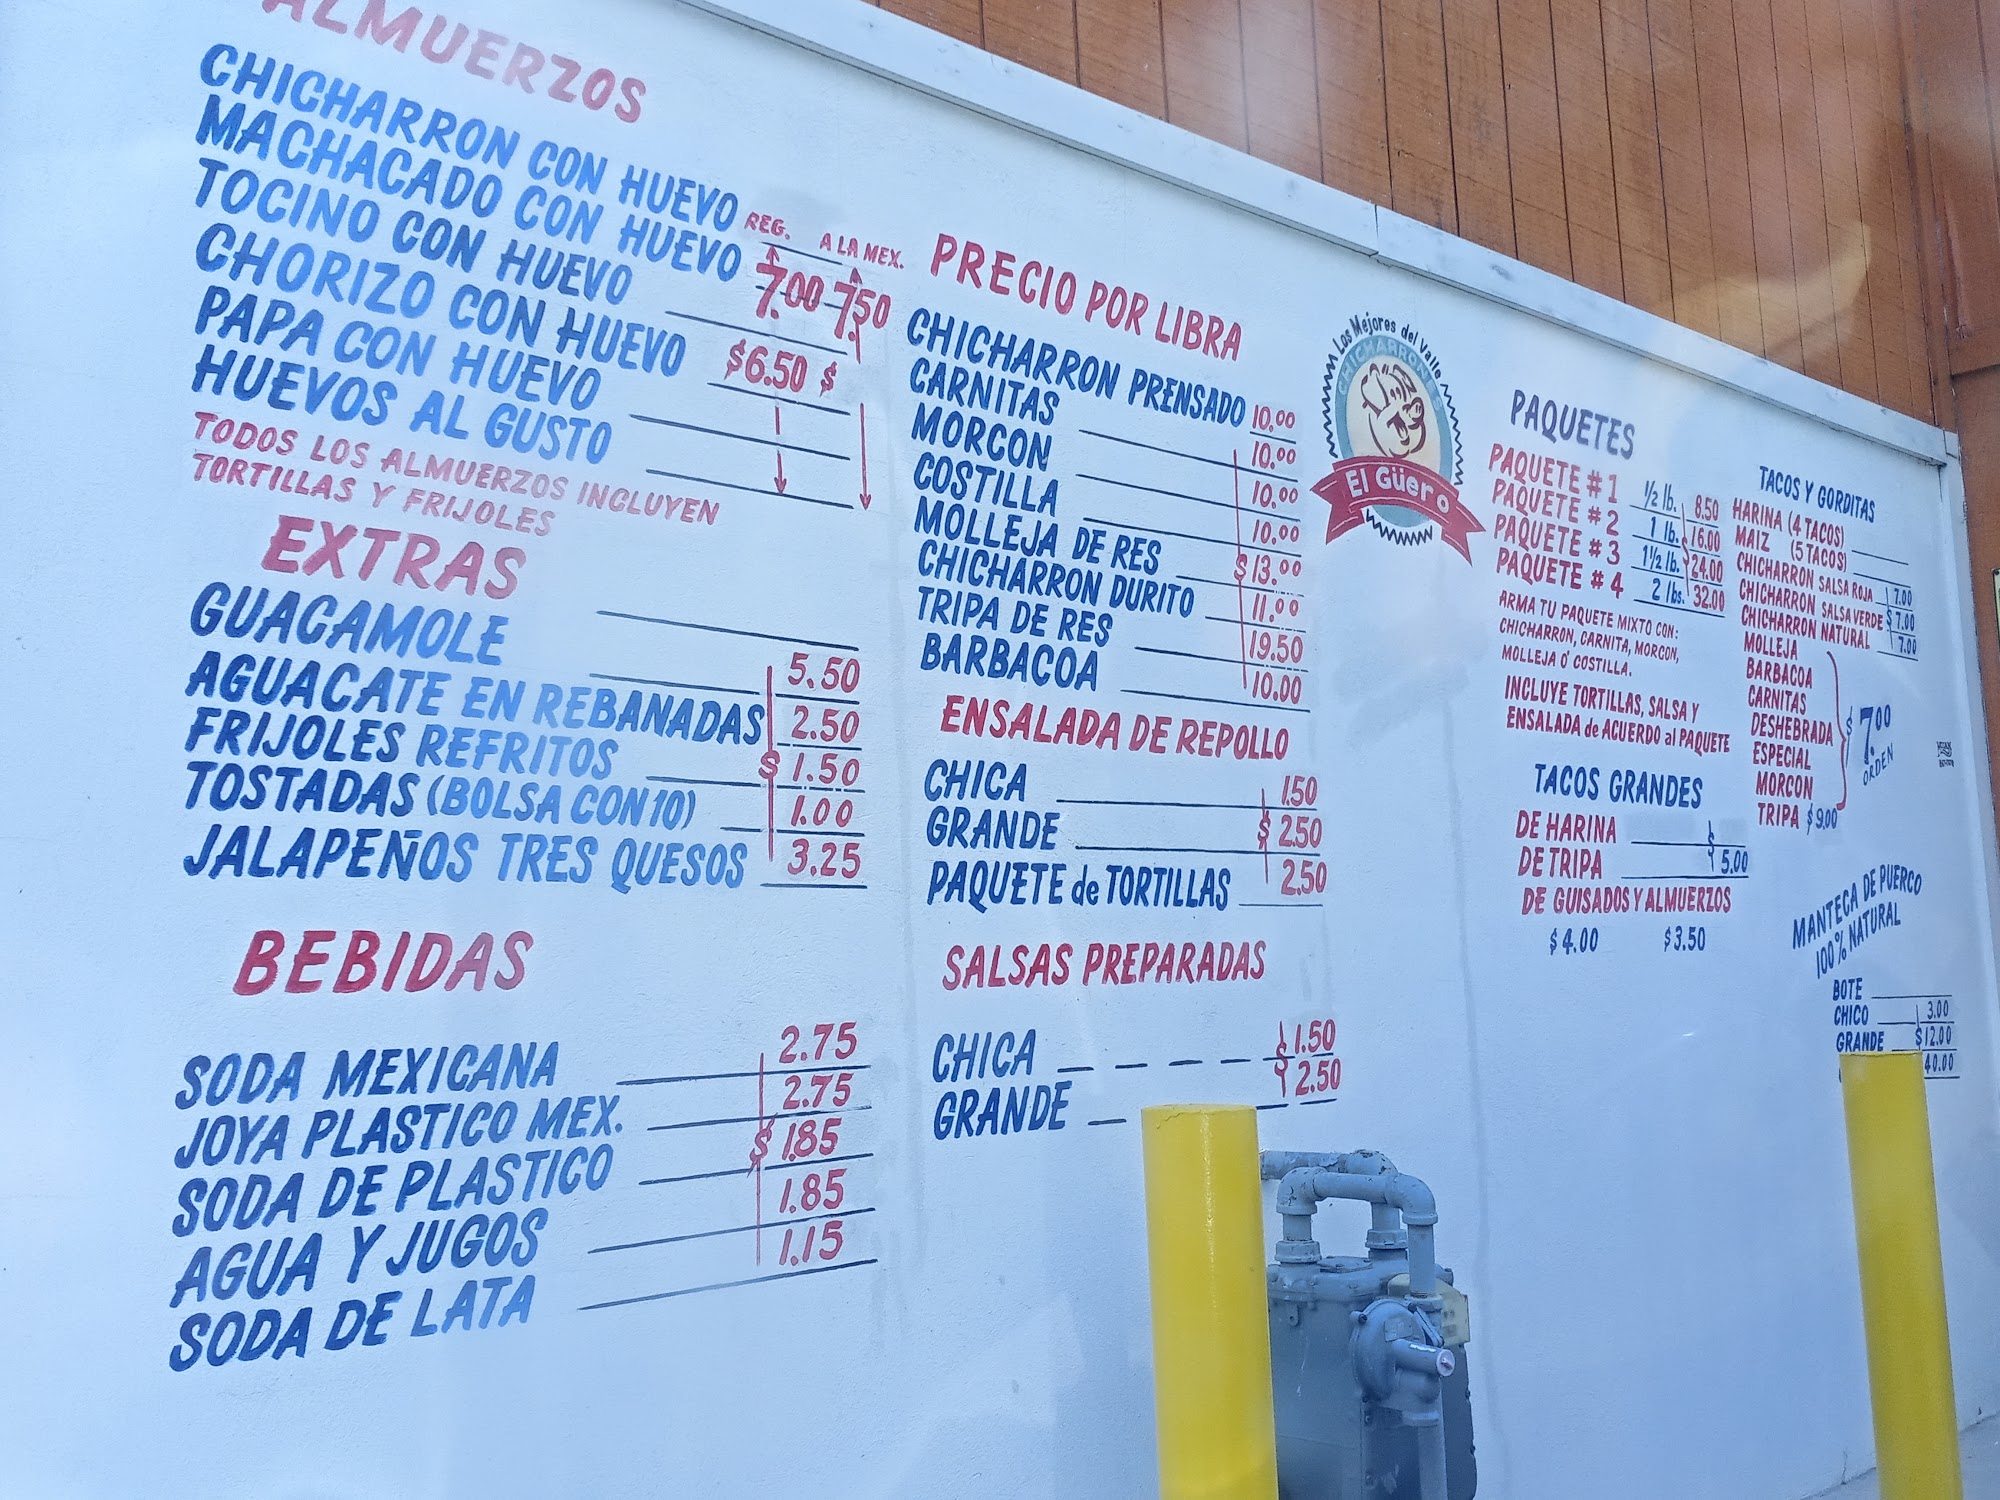 ALMUERZOS
CHICHARRON CON HUEVO
MACHACADO CON HUEVO
TOCINO CON HUEVO
CHORIZO CON HUEVO
PAPA CON HUEVO
HUEVOS AL GUSTO
REG. A LA MEX.
7.00 7.50
$6.50 $
TODOS LOS ALMUERZOS INCLUYEN
TORTILLAS Y FRIJOLES
EXTRAS
GUACAMOLE 5.50
AGUACATE EN REBANADAS 2.50
FRIJOLES REFRITOS $ 1.50
TOSTADAS (BOLSA CON 10) 1.00
JALAPEÑOS TRES QUESOS 3.25
BEBIDAS
SODA MEXICANA 2.75
JOYA PLASTICO MEX. 2.75
SODA DE PLASTICO $ 1.85
AGUA Y JUGOS 1.85
SODA DE LATA 1.15
PRECIO POR LIBRA
CHICHARRON PRENSADO 10.00
CARNITAS 10.00
MORCON 10.00
COSTILLA 10.00
MOLLEJA DE RES $ 13.00
CHICHARRON DURITO 11.00
TRIPA DE RES 19.50
BARBACOA 10.00
ENSALADA DE REPOLLO
CHICA 1.50
GRANDE $ 2.50
PAQUETE de TORTILLAS 2.50
SALSAS PREPARADAS
CHICA $ 1.50
GRANDE 2.50
Los Mejores del Valle
CHICHARRONES
El Güero
PAQUETES
PAQUETE # 1 1/2 lb. 8.50
PAQUETE # 2 1 lb. 16.00
PAQUETE # 3 1 1/2 lb. $ 24.00
PAQUETE # 4 2 lbs. 32.00
ARMA TU PAQUETE MIXTO CON:
CHICHARRON, CARNITA, MORCON,
MOLLEJA O' COSTILLA.
INCLUYE TORTILLAS, SALSA Y
ENSALADA de ACUERDO al PAQUETE
TACOS GRANDES
DE HARINA $
DE TRIPA 5.00
DE GUISADOS Y ALMUERZOS
$4.00 $3.50
TACOS Y GORDITAS
HARINA (4 TACOS)
MAIZ (5 TACOS)
CHICHARRON SALSA ROJA 7.00
CHICHARRON SALSA VERDE $ 7.00
CHICHARRON NATURAL 7.00
MOLLEJA
BARBACOA
CARNITAS
DESHEBRADA
ESPECIAL
MORCON
$ 7.00
ORDEN
TRIPA $9.00
MANTECA DE PUERCO
100% NATURAL
BOTE
CHICO 3.00
GRANDE $12.00
40.00